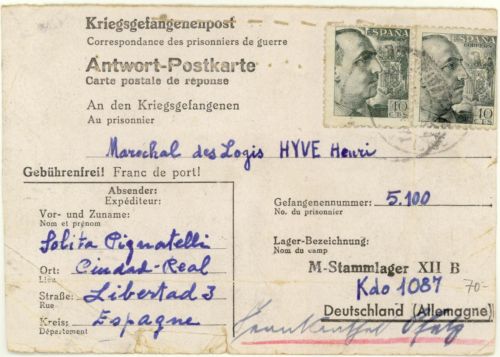 Kriegsgefangenenpost
Correspondance des prisonniers de guerre
Antwort-Postkarte
Carte postale de réponse
An den Kriegsgefangenen
Au prisonnier
ESPAÑA
CORREOS
10
CTS
ESPAÑA
CORREOS
10
CTS
Marechal des Logis HYVE Henri
Gebührenfrei! Franc de port!
Absender:
Expéditeur:
Vor- und Zuname:
Nom et prénom
Lolita Pignatelli
Ort:
Lieu
Ciudad-Real
Straße:
Rue
Libertad 3
Kreis:
Département
Espagne
Gefangenennummer: 5.100
No. du prisonnier
Lager-Bezeichnung:
Nom du camp
M-Stammlager XII B
Kdo 1087
70-
Deutschland (Allemagne)
Frankenthal Pfalz